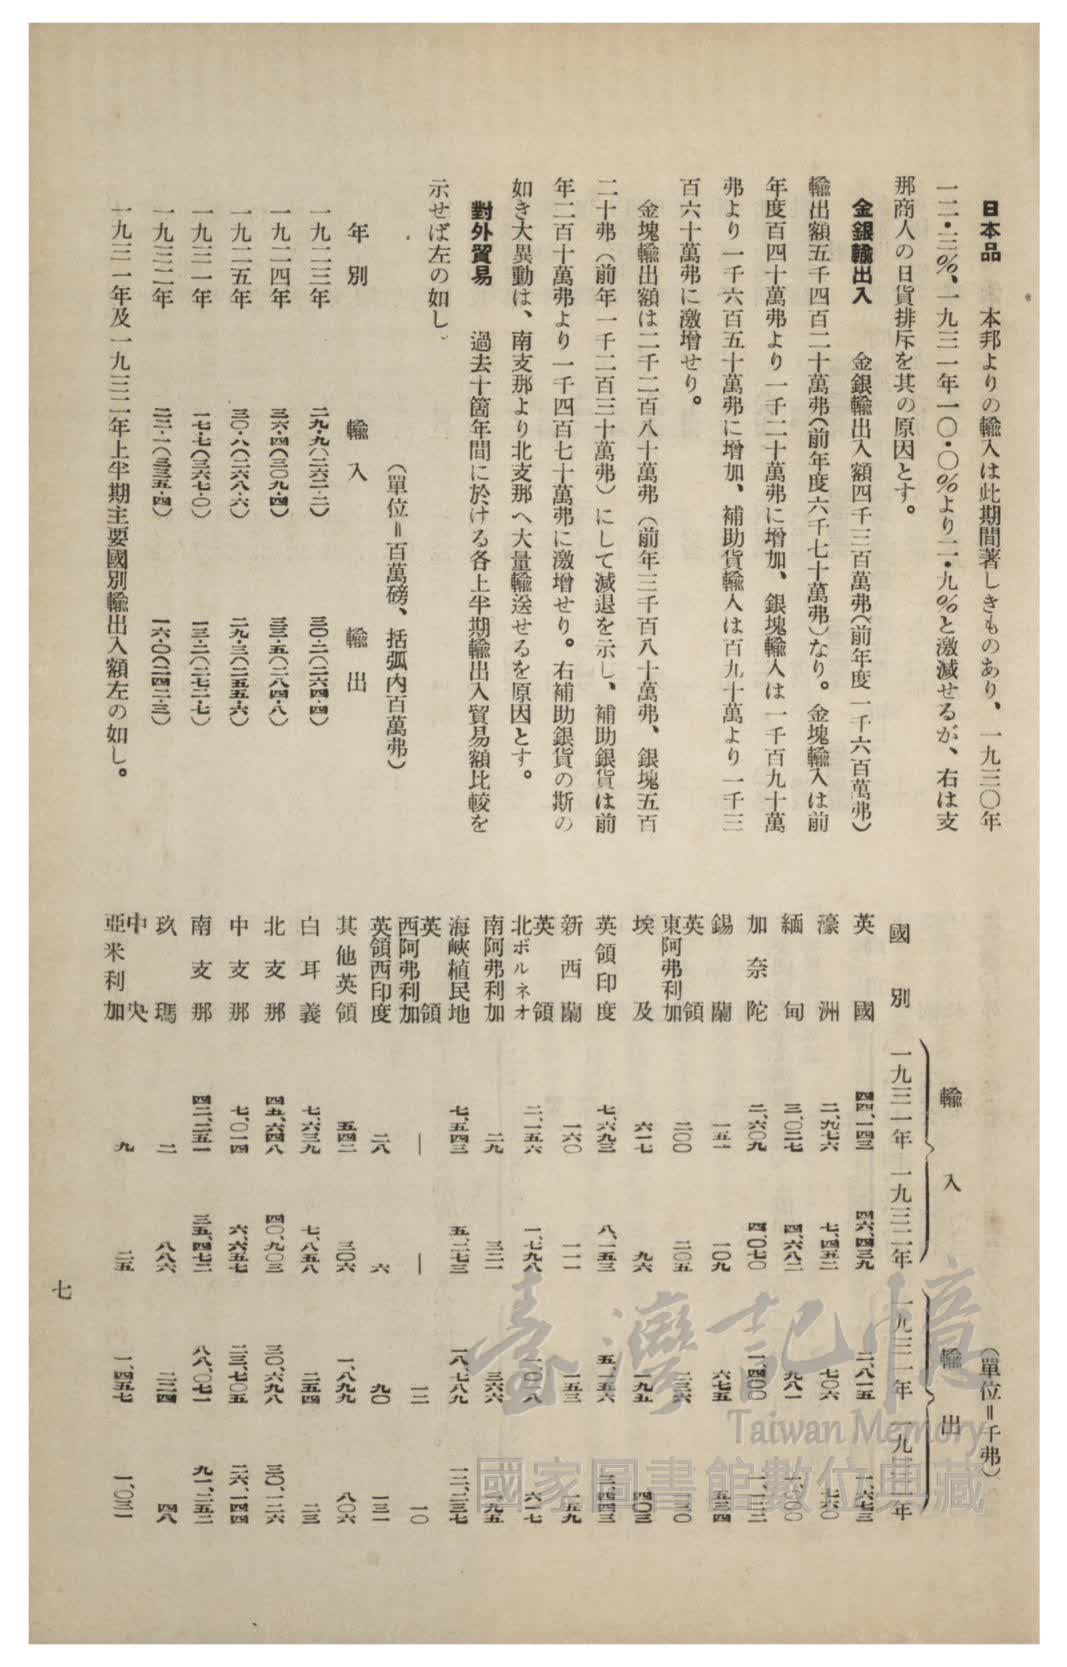 日本品　本邦よりの輸入は此期間著しきものあり、一九三〇年
一二・三%、一九三一年一〇・〇%より二・九%と激減せるが、右は支
那商人の日貨排斥を其の原因とす。
金銀輸出入　金銀輸出入額四千三百萬弗(前年度一千六百萬弗)
輸出額五千四百二十萬弗(前年度六千七十萬弗)なり。金塊輸入は前
年度百四十萬弗より一千二十萬弗に增加、銀塊輸入は一千百九十萬
弗より一千六百五十萬弗に增加、補助貨輸入は百九十萬より一千三
百六十萬弗に激增せり。
金塊輸出額は二千二百八十萬弗(前年三千百八十萬弗、銀塊五百
二十弗(前年一千二百三十萬弗)にして減退を示し、補助銀貨は前
年二百十萬弗より一千四百七十萬弗に激增せり。右補助銀貨の斯の
如き大異動は、南支那より北支那へ大量輸送せるを原因とす。
對外貿易　過去十箇年間に於ける各上半期輸出入貿易額比較を
示せば左の如し。
(單位=百萬磅、括弧內百萬弗)
年別　輸入　輸出
一九二三年　二九・九(二六二・二)　三〇・二(二六四・四)
一九二四年　三六・四(三〇九・四)　三三・五(二八四・八)
一九二五年　三〇・八(二六八・六)　二九・三(二五五・六)
一九三一年　一七・七(三六七・〇)　一三・二(二七二・七)
一九三二年　二二・一(三三五・四)　一六・〇(二四二・三)
一九三一年及一九三二年上半期主要國別輸出入額左の如し。
(單位=千弗)
輸入　輸出
國別　一九三一年　一九三二年　一九三一年　一九　年
英國　四四、一四三　四六、四三九　二、八一五　、六七三
濠洲　二、九七六　七、四五二　七〇六　七六〇
緬甸　三、〇二七　四、六八二　九八一
加奈陀　二、六〇九　四、〇七〇　一、四〇〇
錫蘭　一五一　一〇九　六七五　五三四
英領東阿弗利加　二〇〇　二〇五　二三六
埃及　六一七　九六　一九五　四〇三
英領印度　七、六九三　八、一五三　五、一五六　三、四四三
新西蘭　一六〇　一一一　一五三　一五九
英領北ボルネオ　二、一五六　一、七九八　一、〇一八　六二七
南阿弗利加　二九　三二一　三六六　一九五
海峽植民地　七、五四三　五、二七三　一八、七八九　一二、二三七
英領西阿弗利加　―　―　一三　一〇
英領西印度　二八　六　九〇　一三一
其他英領　五四二　三〇六　一、八九九　八〇六
白耳義　七、六三九　七、八五八　二五四　二三
北支那　四五、六四八　四〇、九〇三　三〇、六九八　三〇、一二六
中支那　七、〇一四　六、六五七　二三、七〇五　二六、一四四
南支那　四二、二五一　三五、四七二　八八、〇七一　九一、二五二
玖瑪　二　八八六　二二四　四八
中央亞米利加　九　二五　一、四五七　一、〇三一
七
臺灣記憶
Taiwan Memory
國家圖書館數位典藏